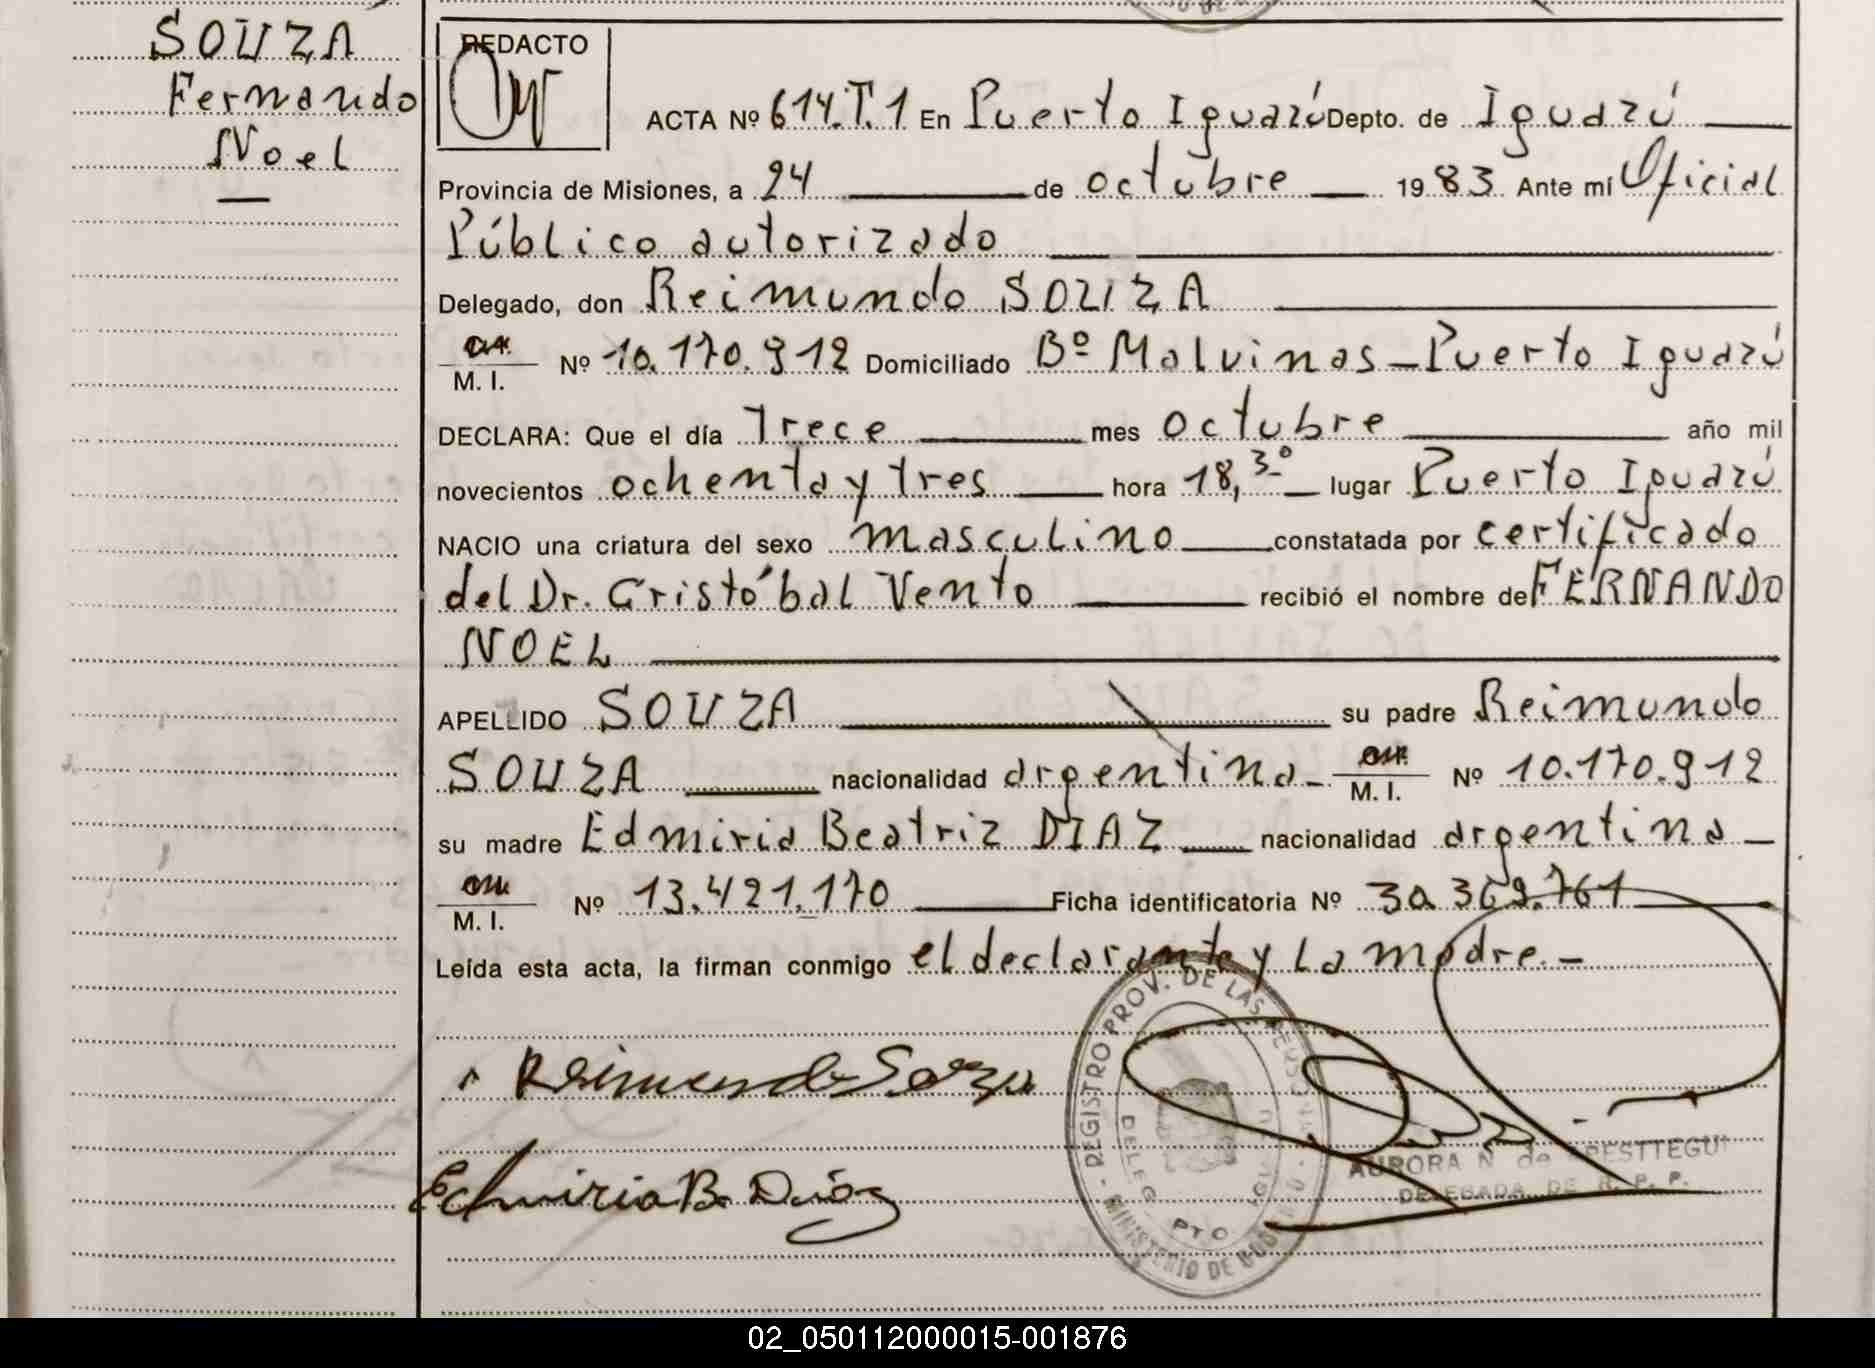 SOUZA
Fernando
Noel
REDACTO
ACTA Nº 614.T.1 En Puerto Iguazú Depto. de Iguazú
Provincia de Misiones, a 24 de octubre 1983. Ante mí Oficial
Público autorizado
Delegado, don Reimundo SOUZA
M. I. Nº 10.170.912 Domiciliado Bº Malvinas - Puerto Iguazú
DECLARA: Que el día Trece mes octubre año mil
novecientos ochenta y tres hora 18,30 lugar Puerto Iguazú
NACIO una criatura del sexo masculino constatada por certificado
del Dr. Cristóbal Vento recibió el nombre de FERNANDO
NOEL
APELLIDO SOUZA su padre Reimundo
SOUZA nacionalidad argentina - M. I. Nº 10.170.912
su madre Edmiria Beatriz DIAZ nacionalidad argentina -
M. I. Nº 13.421.170 Ficha identificatoria Nº 30.369.761
Leída esta acta, la firman conmigo el declarante y la madre. -
REGISTRO PROV. DE LAS PERSONAS
DELEG. PTO. IGUAZU
MINISTERIO DE GOBIERNO
Reimundo Souza
Edmiria B. Diaz
AURORA N. de APESTTEGUI
DELEGADA DE R. P. P.
02_050112000015-001876